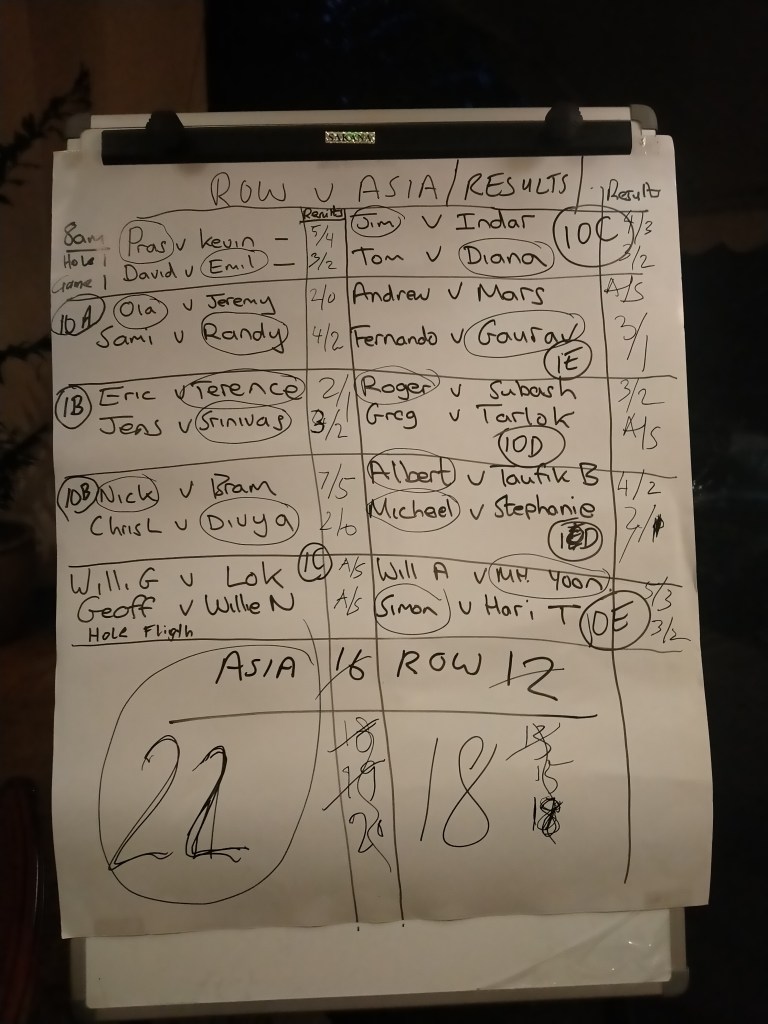 SAKANA
ROW v ASIA / RESULTS
Results
Results
8am
Hole 1
Game 1
Pras v Kevin — 5/4
David v Emil — 3/2
10A
Ola v Jeremy 2/0
Sami v Randy 4/2
1B
Eric v Terence 2/1
Jens v Srinivas 3/2
10B
Nick v Bram 7/5
Chris L v Divya 2/0
1C
Will. G v Lok A/S
Geoff v Willie N A/S
Hole Fligth
Jim v Indar 4/3
10C
Tom v Diana 3/2
Andrew v Mars A/S
Fernando v Gaurav 3/1
1E
Roger v Subash 3/2
Greg v Tarlok A/S
10D
Albert v Taufik B 4/2
Micheal v Stephanie 2/1
Will A v MH. Yoon 5/3
Simon v Hari T 3/2
10E
ASIA 16 ROW 12
22
18
19
20
18
15
18